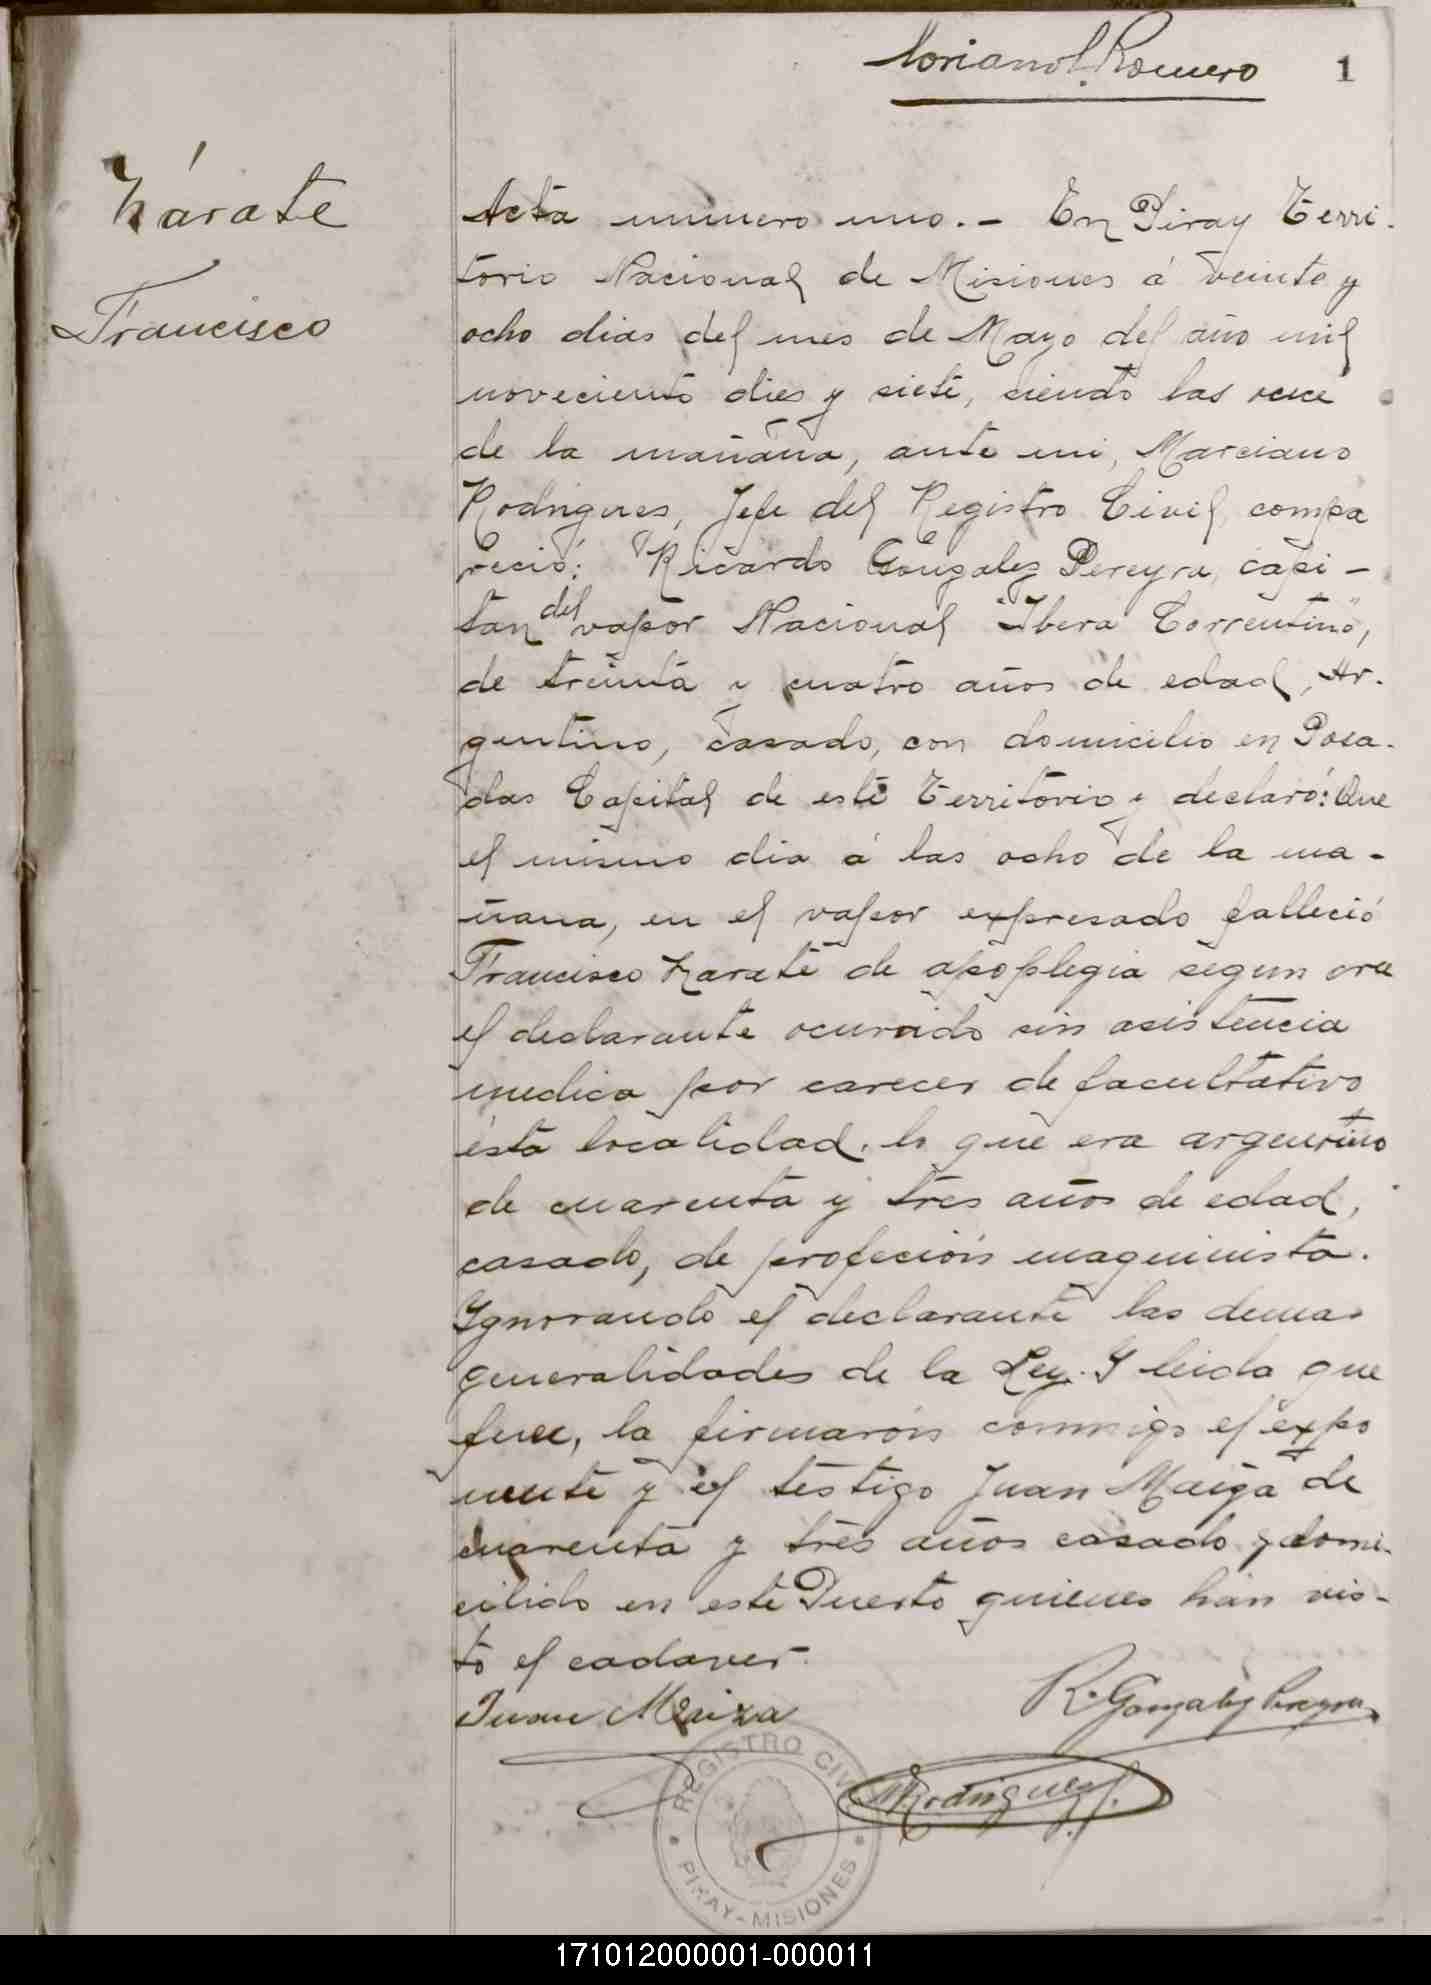 Romero
1
Zárate
Francisco
Acta número uno.- En Piray Terri-
torio Nacional de Misiones á veinte y
ocho dias del mes de Mayo del año mil
noveciento dies y siete, siendo las once
de la mañana, ante mi, Marciano
Rodrigues, Jefe del Registro Civil, compa
reció: Ricardo Gonzalez Pereyra, capi-
tan del vapor Nacional "Ibera Correntino",
de treinta y cuatro años de edad, Ar-
gentino, casado, con domicilio en Posa-
das Capital de este Territorio y declaró: Que
el mismo dia á las ocho de la ma-
ñana, en el vapor expresado falleció
Francisco Zarate de apoplegia segun cree
el declarante ocurrido sin asistencia
medica por carecer de facultativo
ésta localidad. lo que era argentino
de cuarenta y tres años de edad,
casado, de profeción maquinista.
Ygnorando el declarante las demas
generalidades de la Ley. Y leida que
fuee, la firmarón conmigo el expo
nente y el testigo Juan Maiza de
cuarenta y tres años casado y domi-
cilido en este Puerto quienes han vis-
to el cadaver.
Juan Maiza
R. Gonzalez Pereyra
M. Rodriguez
REGISTRO CIVIL
PIRAY-MISIONES
171012000001-000011